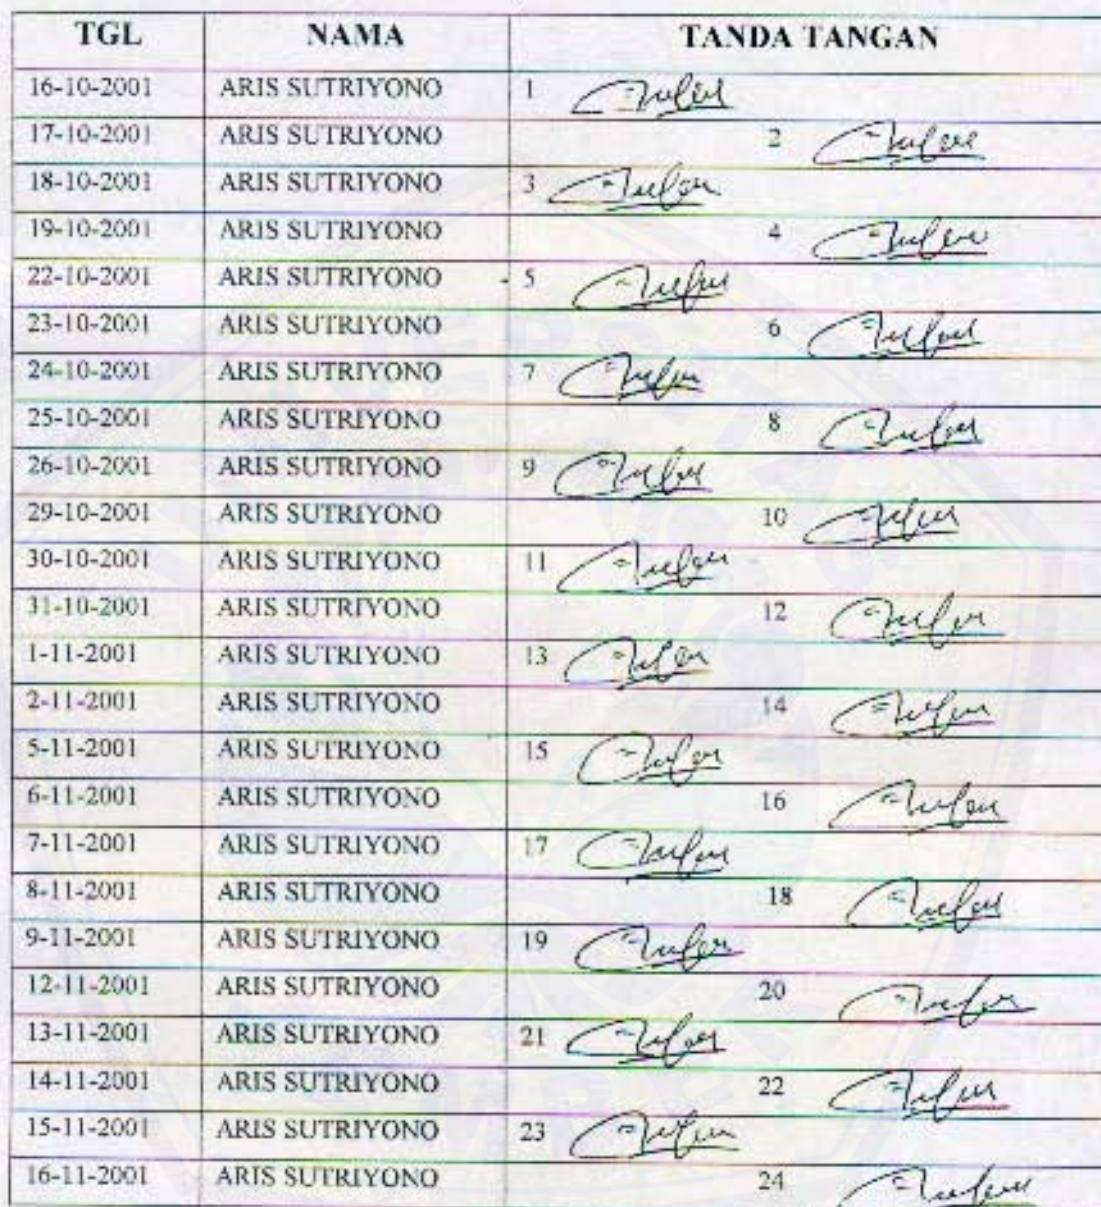 TGL NAMA TANDA TANGAN
16-10-2001 ARIS SUTRIYONO 1
17-10-2001 ARIS SUTRIYONO 2
18-10-2001 ARIS SUTRIYONO 3
19-10-2001 ARIS SUTRIYONO 4
22-10-2001 ARIS SUTRIYONO 5
23-10-2001 ARIS SUTRIYONO 6
24-10-2001 ARIS SUTRIYONO 7
25-10-2001 ARIS SUTRIYONO 8
26-10-2001 ARIS SUTRIYONO 9
29-10-2001 ARIS SUTRIYONO 10
30-10-2001 ARIS SUTRIYONO 11
31-10-2001 ARIS SUTRIYONO 12
1-11-2001 ARIS SUTRIYONO 13
2-11-2001 ARIS SUTRIYONO 14
5-11-2001 ARIS SUTRIYONO 15
6-11-2001 ARIS SUTRIYONO 16
7-11-2001 ARIS SUTRIYONO 17
8-11-2001 ARIS SUTRIYONO 18
9-11-2001 ARIS SUTRIYONO 19
12-11-2001 ARIS SUTRIYONO 20
13-11-2001 ARIS SUTRIYONO 21
14-11-2001 ARIS SUTRIYONO 22
15-11-2001 ARIS SUTRIYONO 23
16-11-2001 ARIS SUTRIYONO 24